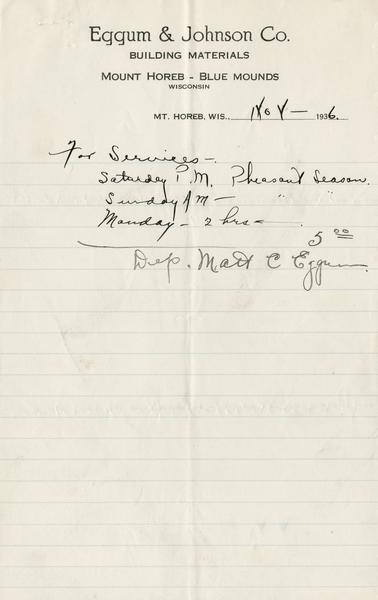 Eggum & Johnson Co.
BUILDING MATERIALS
MOUNT HOREB - BLUE MOUNDS
WISCONSIN
MT. HOREB, WIS., Nov — 1936.
For Services —
Saturday P.M. Pheasant Season.
Sunday AM — " "
Monday — 2 hrs —
5 00
Dep. Matt C Eggum